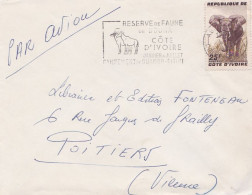 PAR AVION
RESERVE DE FAUNE
DE BOUNA
CÔTE
D'IVOIRE
REPUBLIQUE DE
25F
CÔTE D'IVOIRE
Librairie et Edition FONTENEAU
6 Rue Jacques de Grailly
POITIERS
(Vienne)